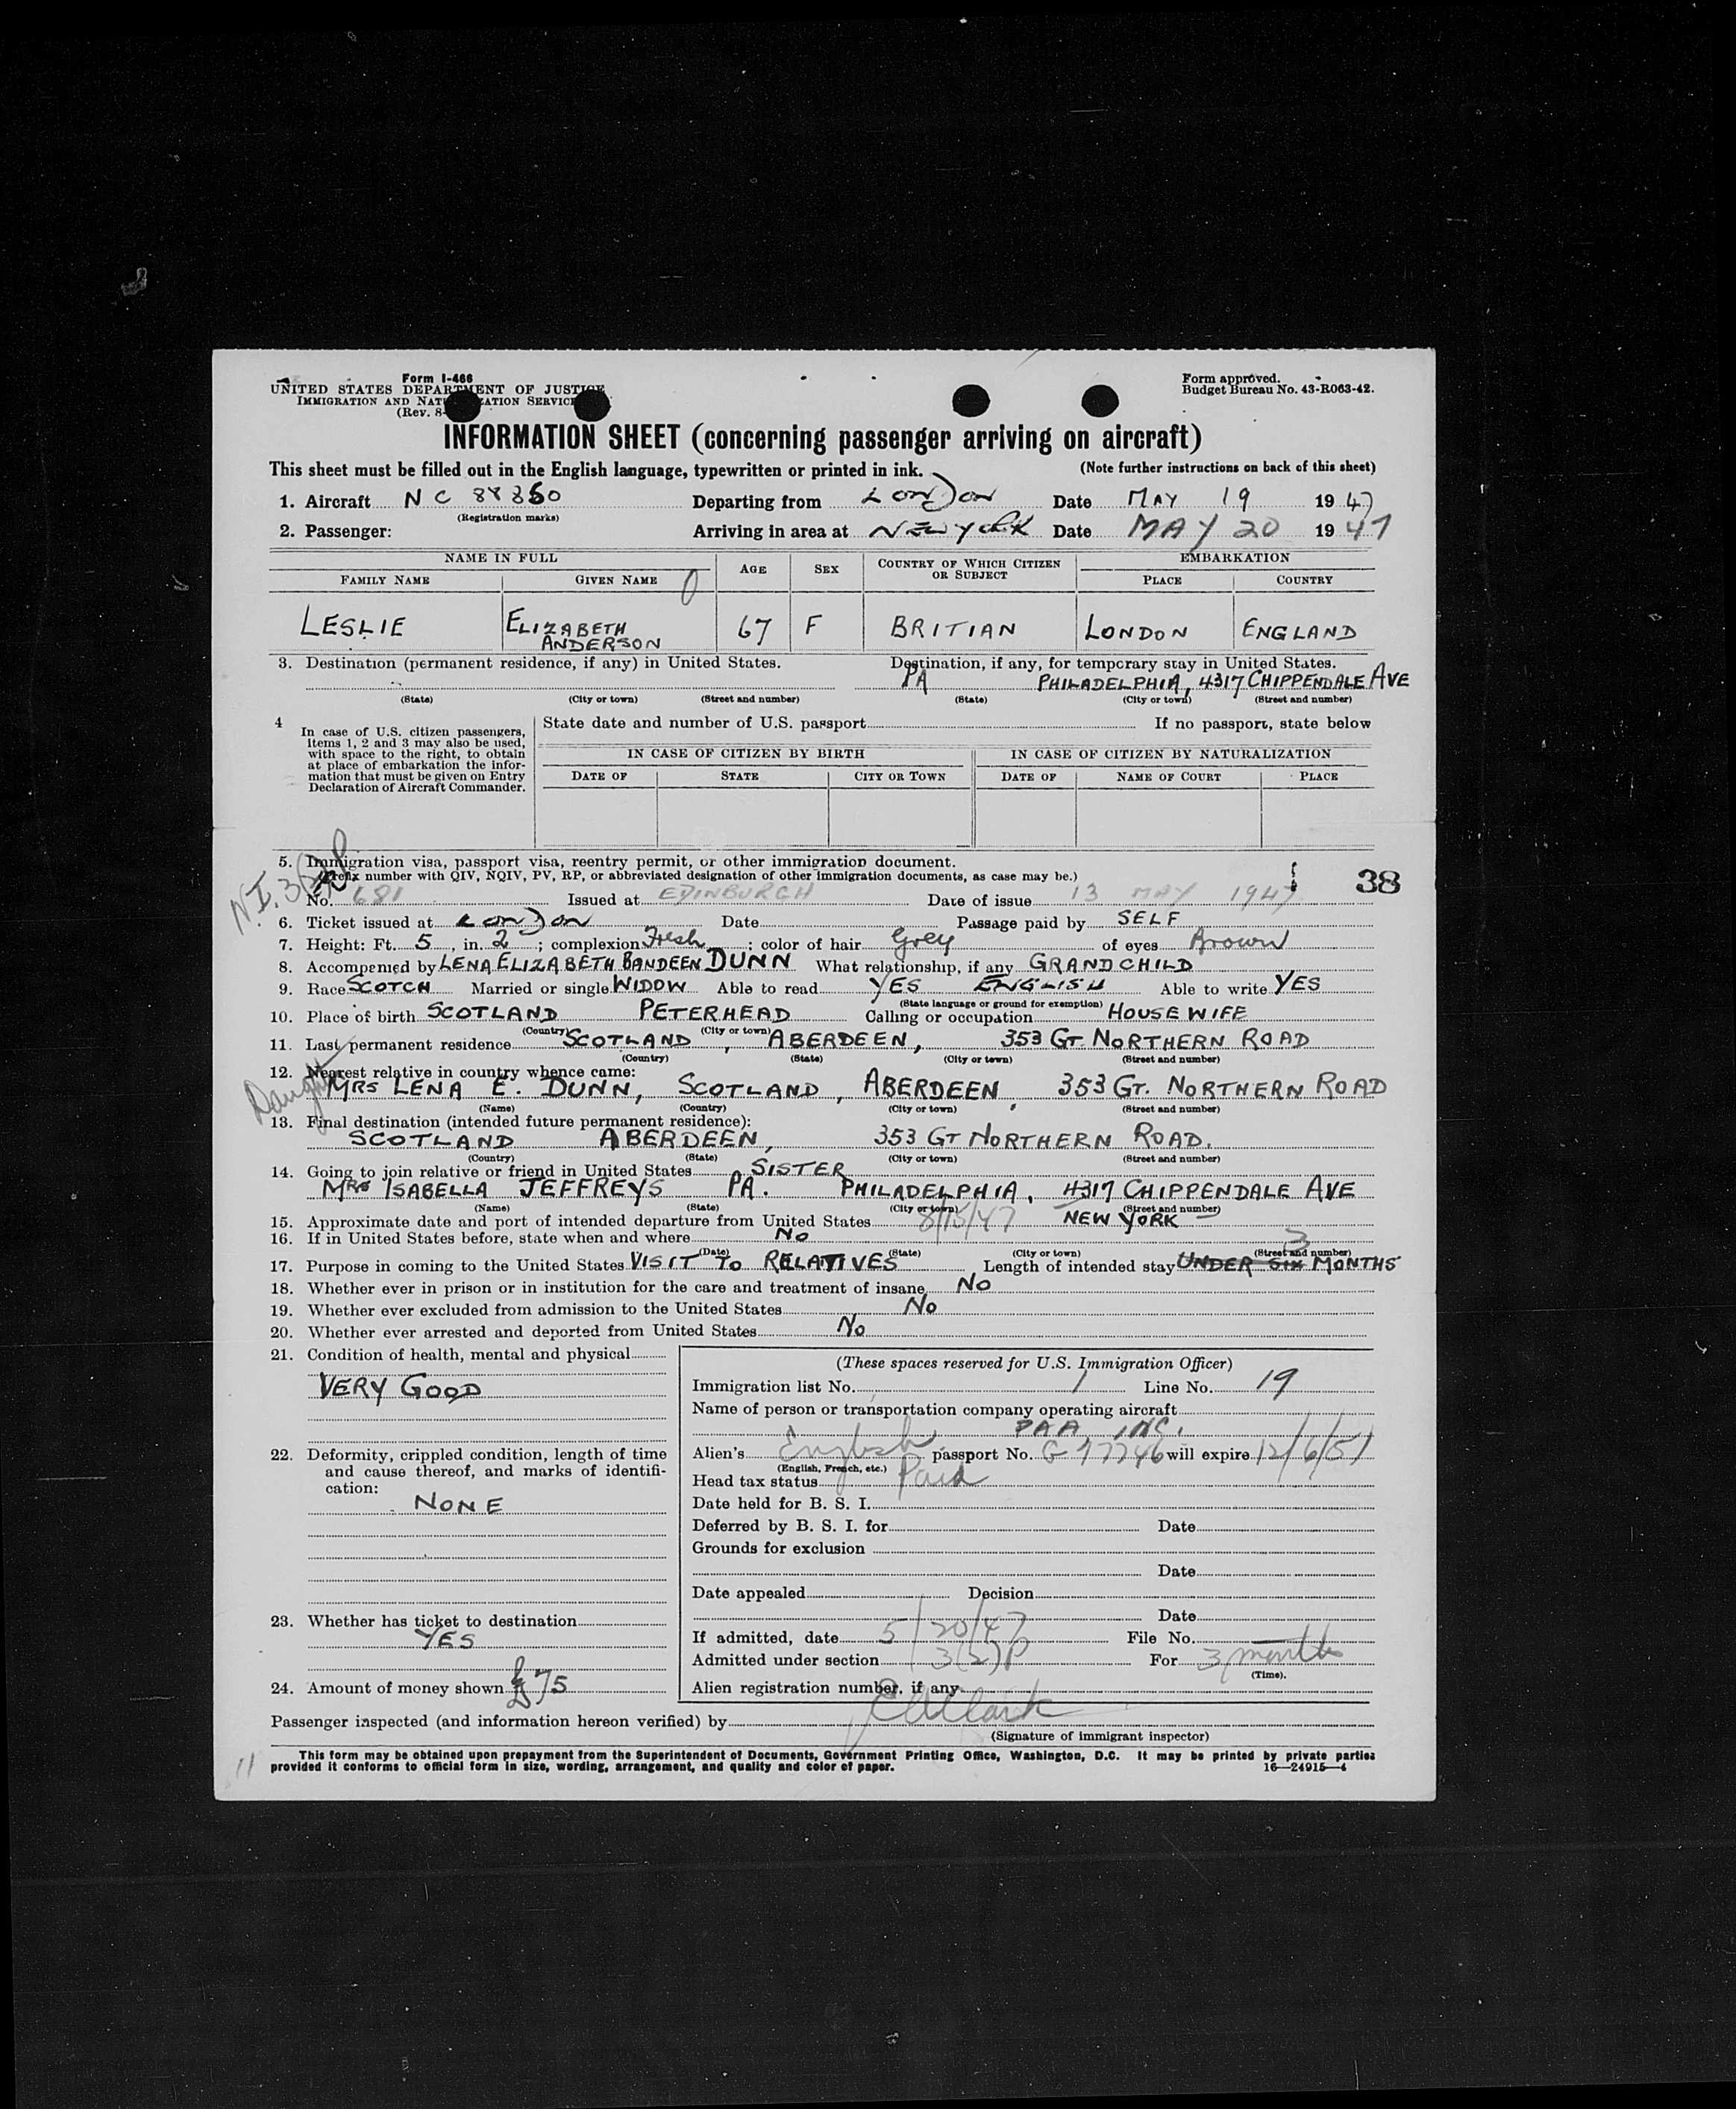 Form I-466
UNITED STATES DEPARTMENT OF JUSTICE
IMMIGRATION AND NATURALIZATION SERVICE
(Rev. 8-
Form approved.
Budget Bureau No. 43-R063-42.
INFORMATION SHEET (concerning passenger arriving on aircraft)
This sheet must be filled out in the English language, typewritten or printed in ink. (Note further instructions on back of this sheet)
1. Aircraft NC 88860 Departing from LONDON Date MAY 19 1947
(Registration marks)
2. Passenger: Arriving in area at NEW YORK Date MAY 20 1947
NAME IN FULL AGE SEX COUNTRY OF WHICH CITIZEN OR SUBJECT EMBARKATION
FAMILY NAME GIVEN NAME PLACE COUNTRY
LESLIE ELIZABETH ANDERSON 67 F BRITIAN LONDON ENGLAND
3. Destination (permanent residence, if any) in United States. Destination, if any, for temporary stay in United States.
PA PHILADELPHIA, 4317 CHIPPENDALE AVE
(State) (City or town) (Street and number) (State) (City or town) (Street and number)
4 In case of U.S. citizen passengers, items 1, 2 and 3 may also be used, with space to the right, to obtain at place of embarkation the information that must be given on Entry Declaration of Aircraft Commander.
State date and number of U.S. passport If no passport, state below
IN CASE OF CITIZEN BY BIRTH IN CASE OF CITIZEN BY NATURALIZATION
DATE OF STATE CITY OR TOWN DATE OF NAME OF COURT PLACE
5. Immigration visa, passport visa, reentry permit, or other immigration document.
(Prefix number with QIV, NQIV, PV, RP, or abbreviated designation of other immigration documents, as case may be.) 38
No. 681 Issued at EDINBURGH Date of issue 13 MAY 1947
6. Ticket issued at LONDON Date Passage paid by SELF
7. Height: Ft. 5, in. 2; complexion Fresh; color of hair Grey of eyes Brown
8. Accompanied by LENA ELIZABETH BANDEEN DUNN What relationship, if any GRANDCHILD
9. Race SCOTCH Married or single WIDOW Able to read YES ENGLISH Able to write YES
(State language or ground for exemption)
10. Place of birth SCOTLAND PETERHEAD Calling or occupation HOUSEWIFE
(Country) (City or town)
11. Last permanent residence SCOTLAND, ABERDEEN, 353 GT. NORTHERN ROAD
(Country) (State) (City or town) (Street and number)
12. Nearest relative in country whence came:
MRS LENA E. DUNN, SCOTLAND, ABERDEEN, 353 GT. NORTHERN ROAD
(Name) (Country) (City or town) (Street and number)
13. Final destination (intended future permanent residence):
SCOTLAND ABERDEEN, 353 GT NORTHERN ROAD.
(Country) (State) (City or town) (Street and number)
14. Going to join relative or friend in United States SISTER
MRS ISABELLA JEFFREYS PA. PHILADELPHIA, 4317 CHIPPENDALE AVE
(Name) (State) (City or town) (Street and number)
15. Approximate date and port of intended departure from United States 8/15/47 NEW YORK
16. If in United States before, state when and where No
(Date) (State) (City or town) (Street and number)
17. Purpose in coming to the United States VISIT TO RELATIVES Length of intended stay UNDER SIX 3 MONTHS
18. Whether ever in prison or in institution for the care and treatment of insane No
19. Whether ever excluded from admission to the United States No
20. Whether ever arrested and deported from United States No
21. Condition of health, mental and physical
VERY GOOD
22. Deformity, crippled condition, length of time and cause thereof, and marks of identification:
NONE
23. Whether has ticket to destination
YES
24. Amount of money shown £75
(These spaces reserved for U.S. Immigration Officer)
Immigration list No. 1 Line No. 19
Name of person or transportation company operating aircraft
PAA, INC.
Alien's English passport No. G 17746 will expire 12/6/51
(English, French, etc.)
Head tax status Paid
Date held for B. S. I.
Deferred by B. S. I. for Date
Grounds for exclusion
Date
Date appealed Decision
Date
If admitted, date 5/20/47 File No.
Admitted under section 3(2)P For 3 months
(Time).
Alien registration number, if any
Passenger inspected (and information hereon verified) by
(Signature of immigrant inspector)
This form may be obtained upon prepayment from the Superintendent of Documents, Government Printing Office, Washington, D.C. It may be printed by private parties
provided it conforms to official form in size, wording, arrangement, and quality and color of paper. 16—24915—4
11